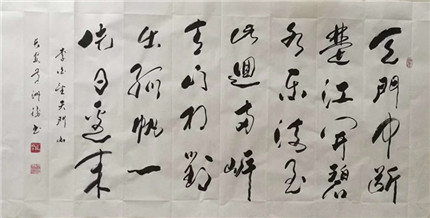 天門中斷
楚江開碧
水東流至
此迴兩岸
青山相對
出孤帆一
片日邊來
李白望天門山
書